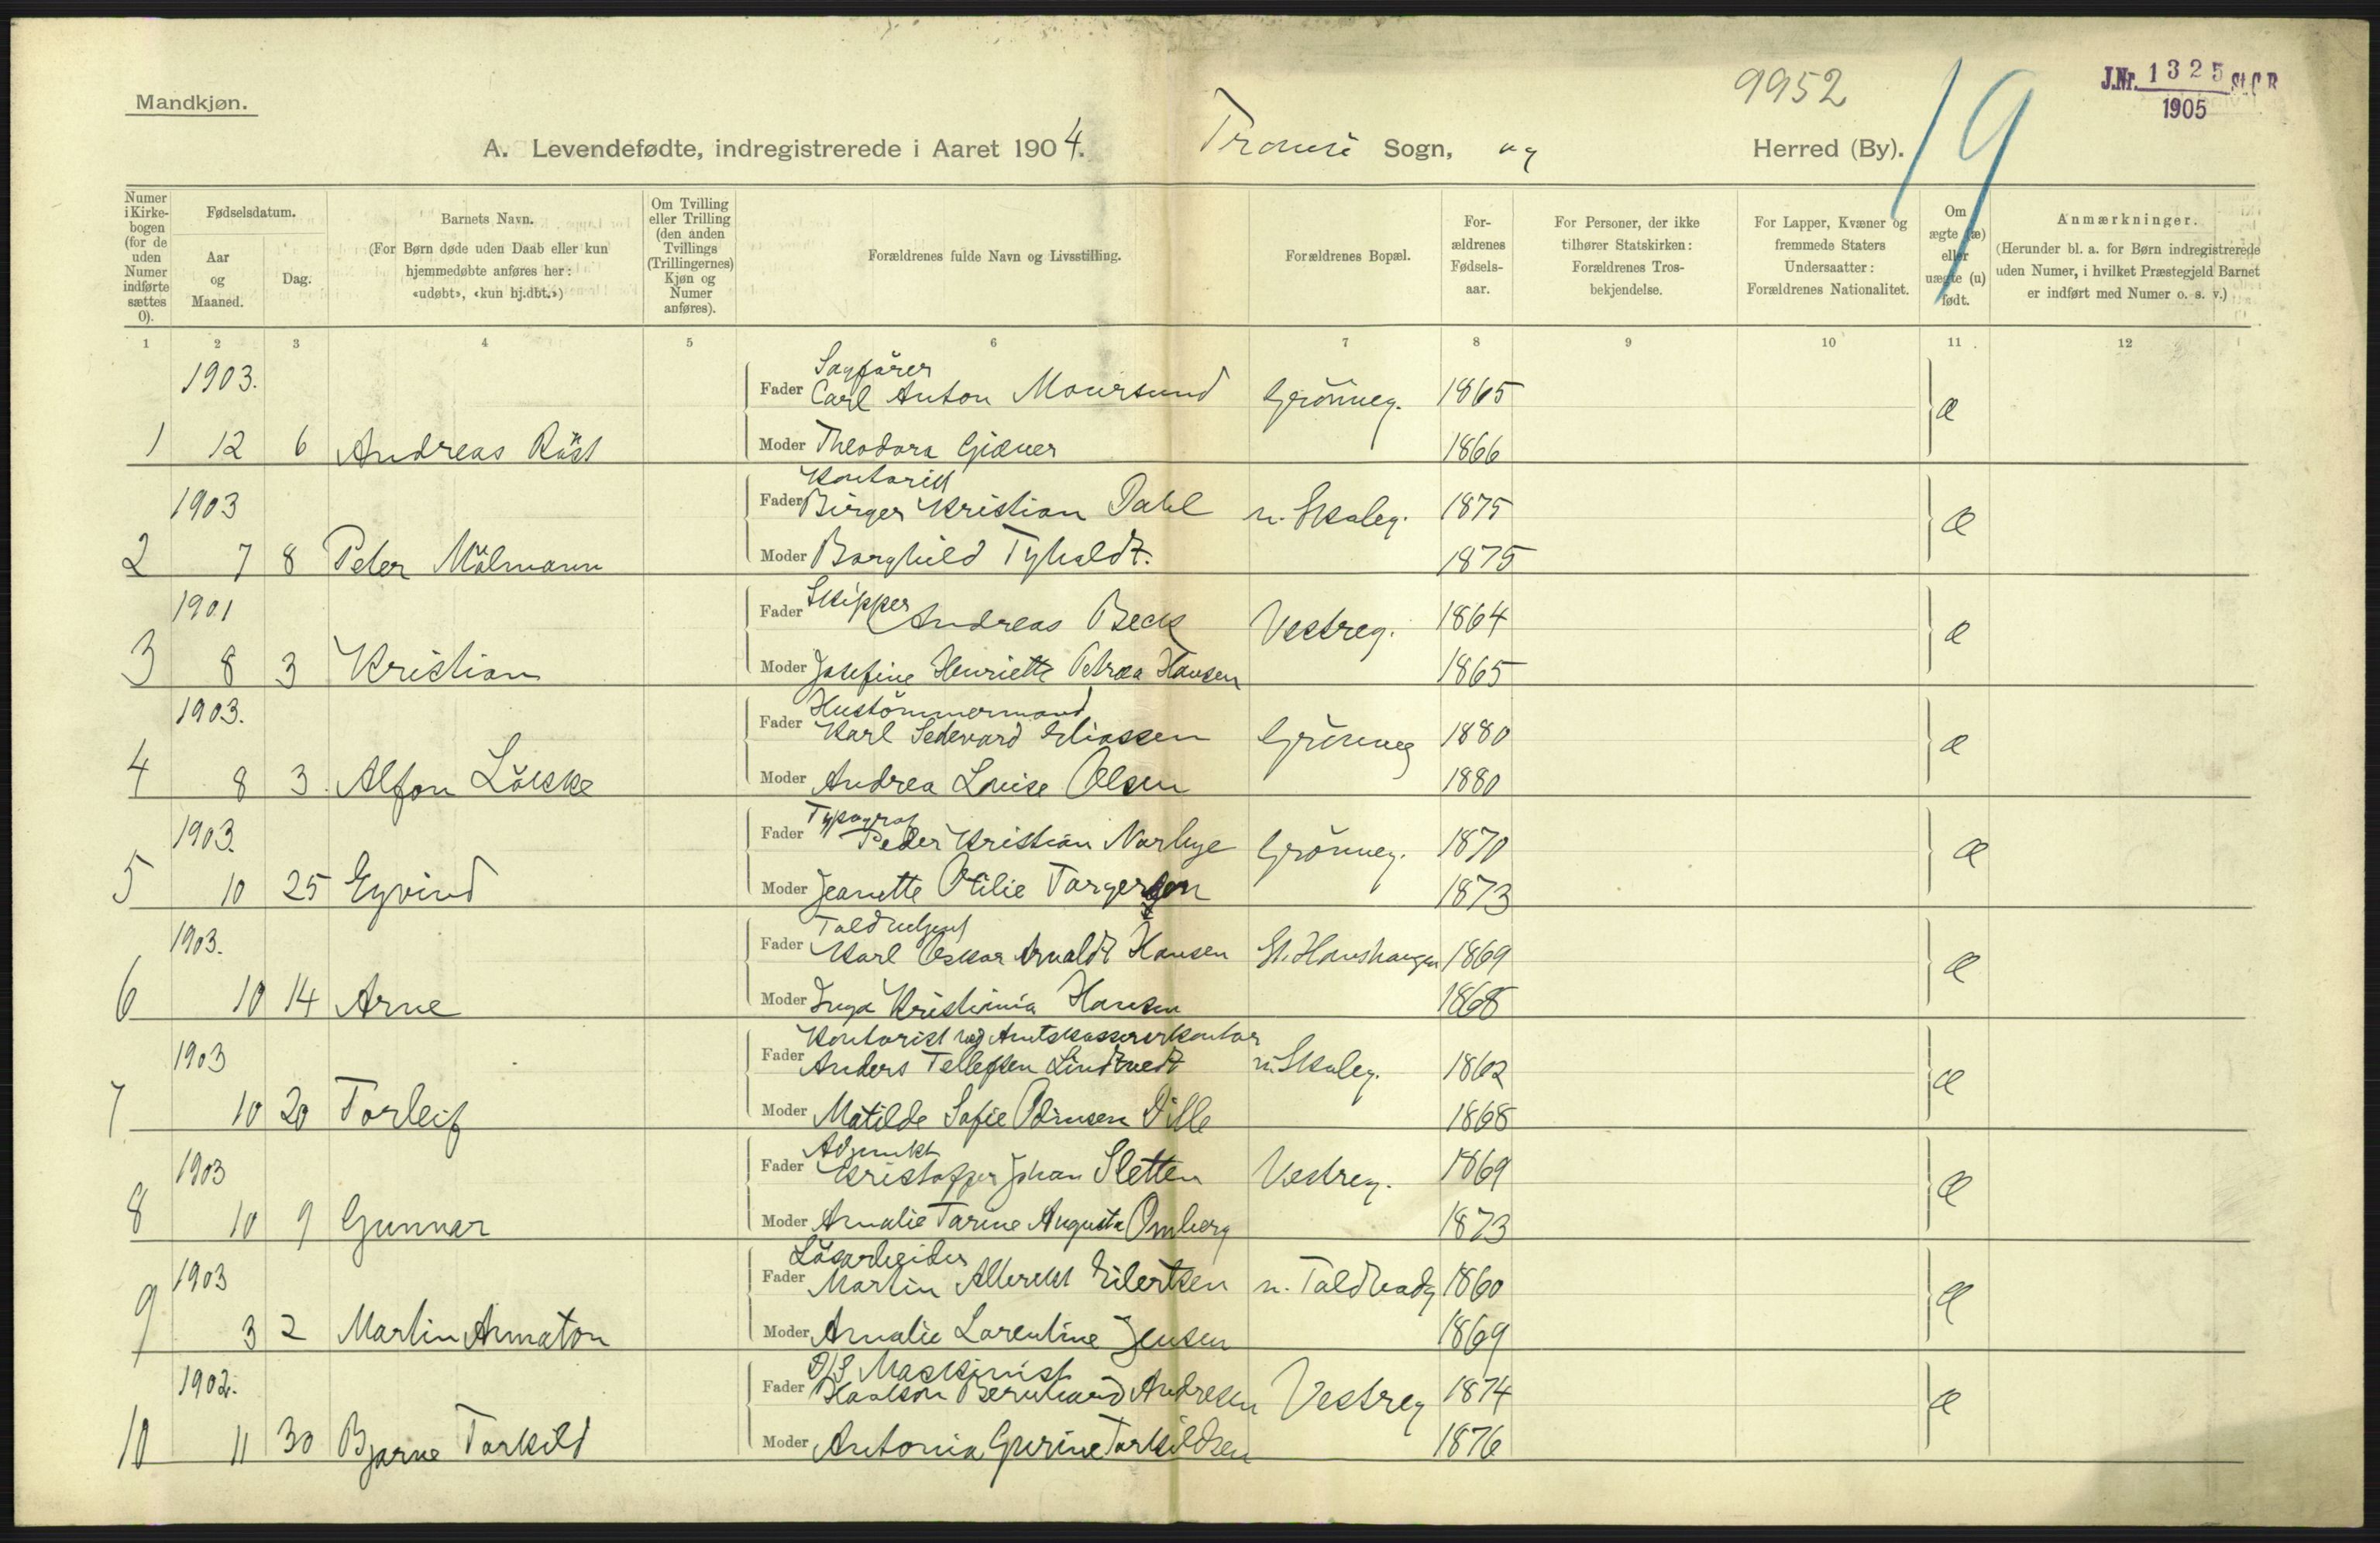 Mandkjøn.
9952
19
J.Nr. 1325 St.C.B
1905
A. Levendefødte, indregistrerede i Aaret 1904. Tromsö Sogn, og Herred (By).
Numer i Kirkebogen (for de uden Numer indførte sættes 0).
Fødselsdatum.
Aar og Maaned.
Dag.
Barnets Navn.
(For Børn døde uden Daab eller kun hjemmedøbte anføres her: «udøbt», «kun hj.dbt.»)
Om Tvilling eller Trilling (den anden Tvillings (Trillingernes) Kjøn og Numer anføres).
Forældrenes fulde Navn og Livsstilling.
Forældrenes Bopæl.
Forældrenes Fødselsaar.
For Personer, der ikke tilhører Statskirken: Forældrenes Trosbekjendelse.
For Lapper, Kvæner og fremmede Staters Undersaatter: Forældrenes Nationalitet.
Om ægte (æ) eller uægte (u) født.
Anmærkninger.
(Herunder bl. a. for Børn indregistrerede uden Numer, i hvilket Præstegjeld Barnet er indført med Numer o. s. v.)
1 2 3 4 5 6 7 8 9 10 11 12
1903. Sagförer
Fader Carl Anton Moursund Grönneg. 1865 æ
1 12 6 Andreas Röst Moder Theodora Gjæver 1866
1903 Kontorist
Fader Birger Kristian Dahl n. Skoleg. 1875 æ
2 7 8 Peter Mölmann Moder Borghild Tyholdt. 1875
1901 Fader Skipper Andreas Beck Vestreg. 1864 æ
3 8 3 Kristian Moder Josefine Henriette Petrea Hansen 1865
1903. Hustömmermand
Fader Karl Sedevard Eliassen Grönneg 1880 æ
4 8 3 Alfon Löcke Moder Andrea Louise Olsen 1880
1903. Typograf
Fader Peder Kristian Norbye Grönneg. 1870 æ
5 10 25 Eyvind Moder Jeanette Otilie Torgersen 1873
1903. Toldbetjent
Fader Karl Oskar Arnoldt Hansen St. Hanshaugen 1869 æ
6 10 14 Arne Moder Inga Kristiania Hansen 1868
1903 Kontorist ved Amtskassererkontor
Fader Anders Tellefsen Lindtvedt n. Skoleg. 1862 æ
7 10 20 Torleif Moder Matilde Sofie Odinsen Dille 1868
1903 Adjunkt
Fader Kristoffer Johan Sletten Vestreg. 1869 æ
8 10 9 Gunnar Moder Amalie Tarine Augusta Omberg 1873
1903 Lösarbeider
Fader Martin Albrekt Eilertsen n. Toldbodg 1860 æ
9 3 2 Martin Armaton Moder Amalie Lorentine Jensen 1869
1902. D/S Maskinist
Fader Haakon Bernhard Andresen Vestreg 1874 æ
10 11 30 Bjarne Torkild Moder Antonia Gurine Torkildsen 1876